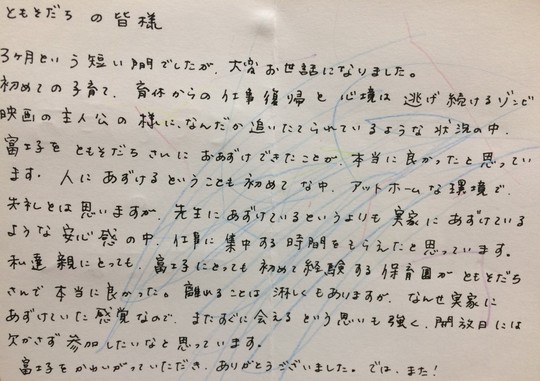 ともそだち の皆様
3ヶ月という短い間でしたが、大変お世話になりました。
初めての子育て、育休からの仕事復帰と心境は逃げ続けるゾンビ
映画の主人公の様に、なんだか追いたてられているような状況の中、
富士子をともそだちさんにおあずけできたことが、本当に良かったと思ってい
ます。人にあずけるということも初めてな中、アットホームな環境で、
失礼とは思いますが、先生にあずけているというよりも実家にあずけている
ような安心感の中、仕事に集中する時間をもらえたと思っています。
私達親にとっても、富士子にとっても初めて経験する保育園がともそだち
さんで本当に良かった。離れることは淋しくもありますが、なんせ実家に
あずけていた感覚なので、またすぐに会えるという思いも強く、開放日には
欠かさず参加したいなと思っています。
富士子をかわいがっていただき、ありがとうございました。では、また!